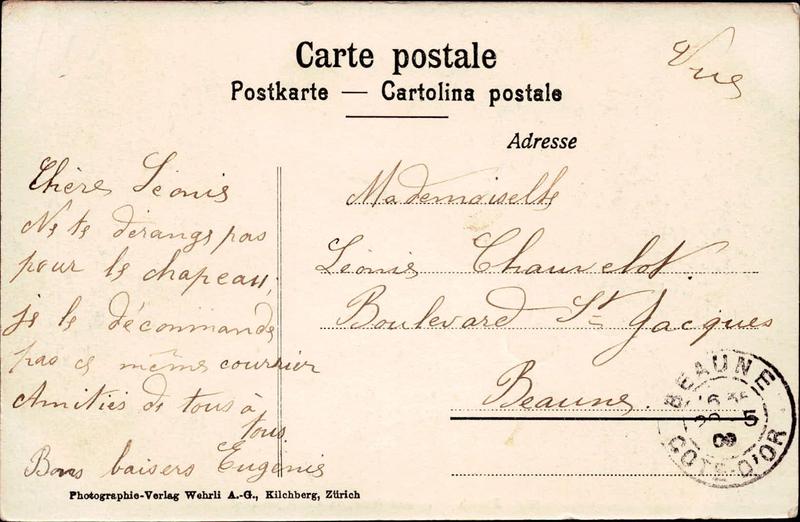 Carte postale
Postkarte — Cartolina postale
Vue
Adresse
Chère Léonie
Ne te dérange pas
pour le chapeau,
je le décommande
par ce même courrier
Amitiés de tous à
tous
Bons baisers Eugenie
Mademoiselle
Léonie Chauvelot
Boulevard St Jacques
Beaune.
BEAUNE
5
09
COTE-D'OR
Photographie-Verlag Wehrli A.-G., Kilchberg, Zürich